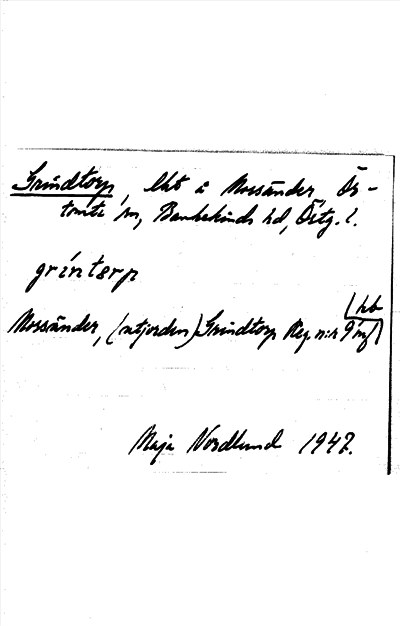 Grindtorp, lht å Mossänder, Ös-
tomta sn, Bankekinds hd, Östg. l.
grinterp
(hb
Mossänder, (utjorden) Grindtorp Reg n:r 9 mf)
Maja Nordlund 1947.